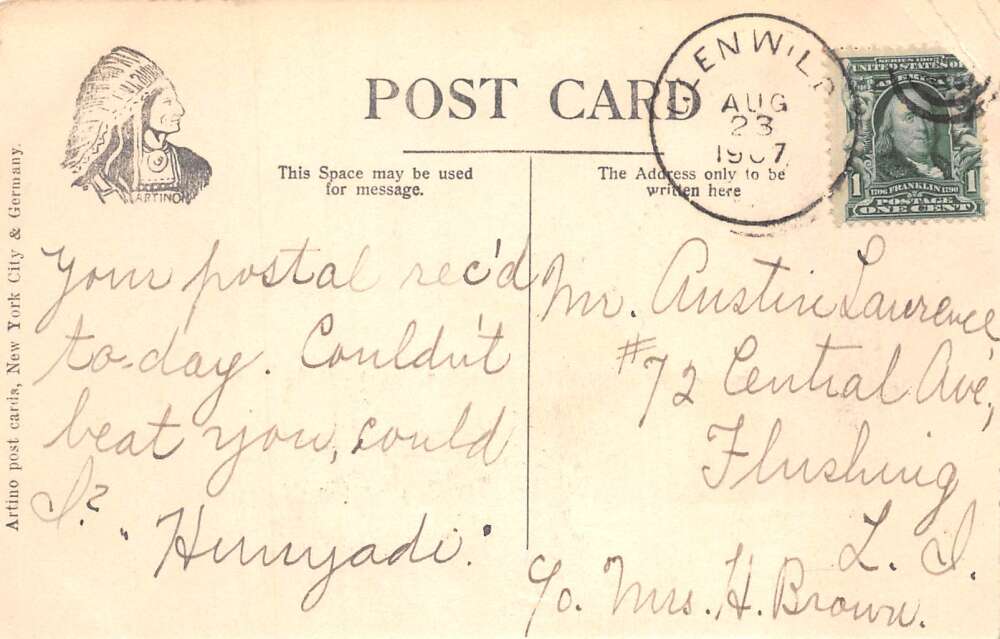 POST CARD
GLENWILD
AUG
23
1907
SERIES 1902
UNITED STATES OF
AMERICA
1706 FRANKLIN 1790
1 POSTAGE 1
ONE CENT
ARTINO
This Space may be used
for message.
The Address only to be
written here
Artino post cards, New York City & Germany.
Your postal rec'd
to-day. Couldn't
beat you, could
I? "Hunyadi."
Mr. Austin Lawrence
#72 Central Ave.,
Flushing
L. I.
c/o. Mrs. H. Brown.